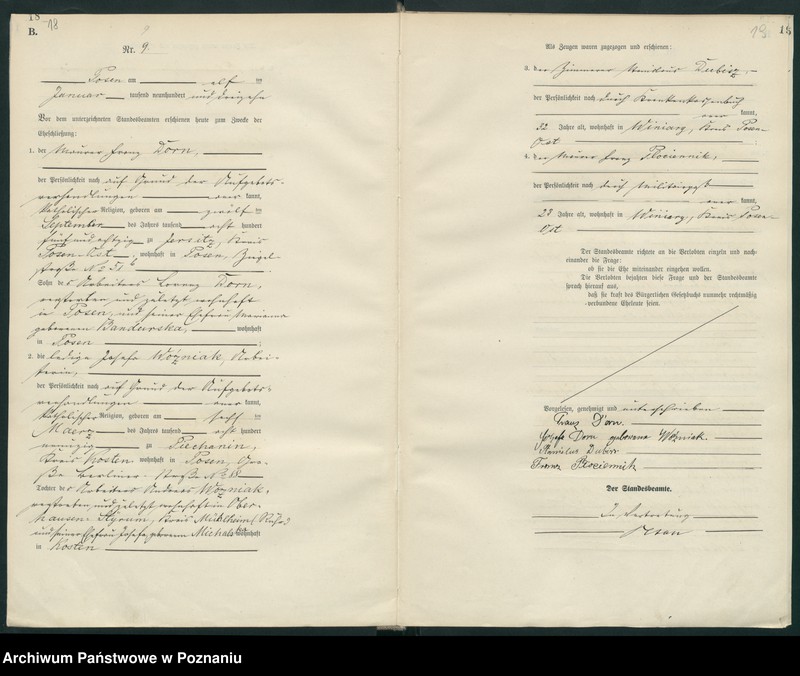 18
18
B.
Nr. 9
Posen am elf ten
Januar tausend neunhundert und dreizehn
Vor dem unterzeichneten Standesbeamten erschienen heute zum Zwecke der
Eheschließung:
1. der Maurer Franz Dorn,
der Persönlichkeit nach auf Grund der Aufgebots-
verhandlungen kannt,
katholischer Religion, geboren am zwölf ten
September des Jahres tausend acht hundert
fünfundachtzig zu Jersitz, Kreis
Posen-Ost, wohnhaft in Posen,
straße No
Sohn des Arbeiters Lorenz Dorn,
verstorben und zuletzt wohnhaft
in Posen, und seiner Ehefrau Marianna
geborenen Bandurska, wohnhaft
in Posen ;
2. die ledige Josefa Woźniak, Arbei-
terin,
der Persönlichkeit nach auf Grund der Aufgebots-
verhandlungen kannt,
katholischer Religion, geboren am sechs ten
Maerz des Jahres tausend acht hundert
neunzig zu Puchanin,
Kreis Kosten wohnhaft in Posen, Gro-
ße Berliner-Straße No
Tochter des Arbeiters Andreas Woźniak,
verstorben und zuletzt wohnhaft in Ober-
hausen-Styrum, Kreis Mühlheim (Ruhr)
und seiner Ehefrau Josefa, geborenen wohnhaft
in Kosten
19
19
Als Zeugen waren zugezogen und erschienen:
3. der Zimmerer
der Persönlichkeit nach durch Krankenkassenbuch
kannt,
32 Jahre alt, wohnhaft in Winiary, Kreis Posen-
Ost ;
4. der Maurer Franz Płóciennik,
der Persönlichkeit nach durch Militärpaß
kannt,
23 Jahre alt, wohnhaft in Winiary, Kreis Posen-
Ost
Der Standesbeamte richtete an die Verlobten einzeln und nach-
einander die Frage:
ob sie die Ehe miteinander eingehen wollen.
Die Verlobten bejahten diese Frage und der Standesbeamte
sprach hierauf aus,
daß sie kraft des Bürgerlichen Gesetzbuchs nunmehr rechtmäßig
verbundene Eheleute seien.
Vorgelesen, genehmigt und unterschrieben
Franz Dorn.
Josefa Dorn geborene Woźniak.
Franz
Der Standesbeamte.
In Vertretung
Archiwum Państwowe w Poznaniu